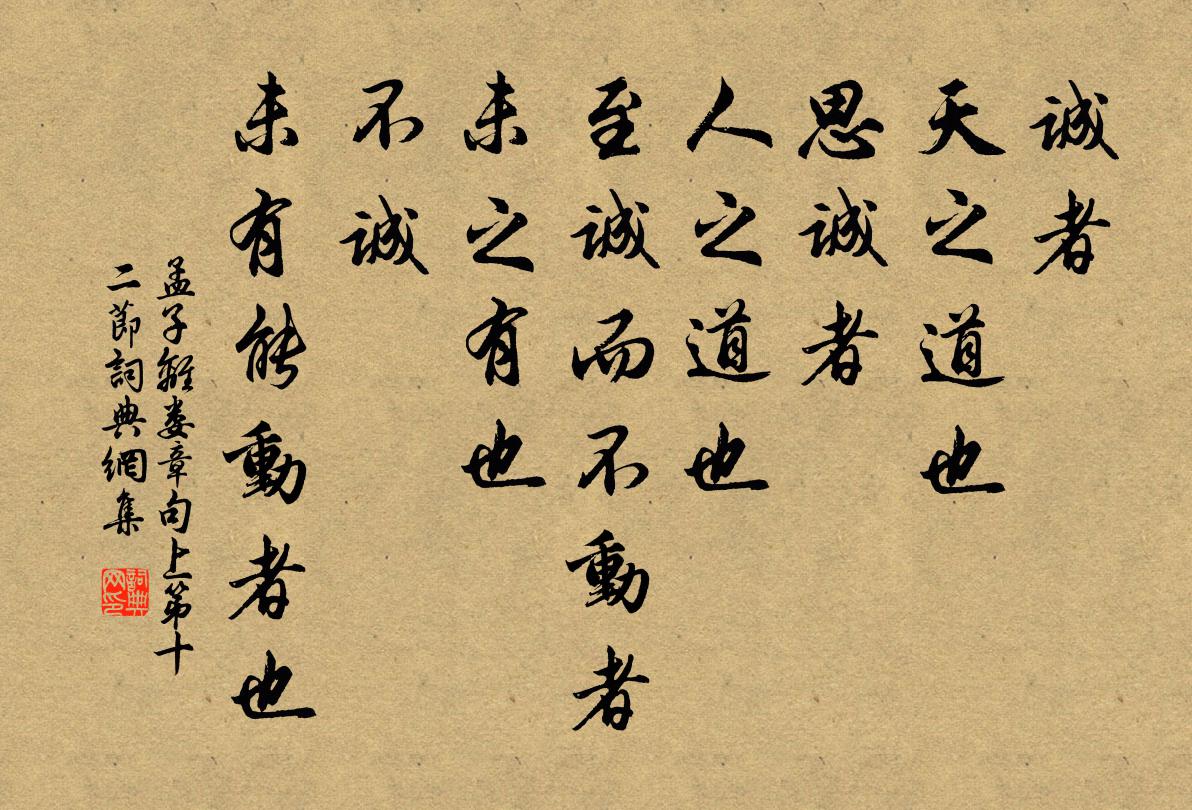 誠者
天之道也
思誠者
人之道也
至誠而不動者
未之有也
不誠
未有能動者也
孟子離娄章句上第十
二節詞典網集
詞典
网印